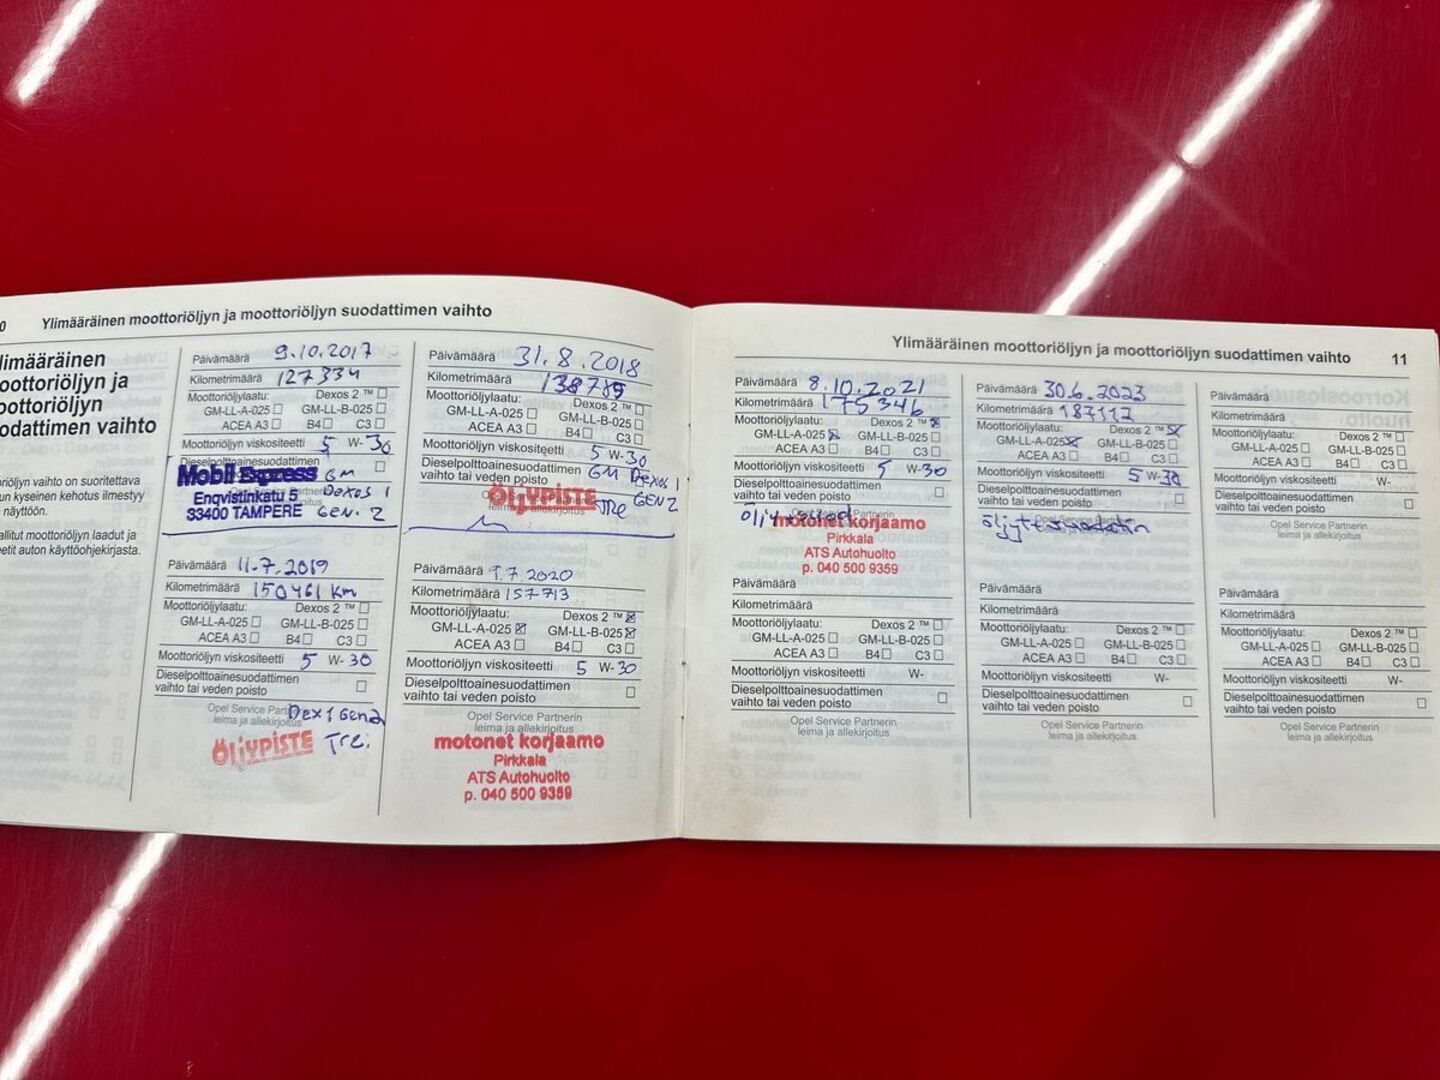 0 Ylimääräinen moottoriöljyn ja moottoriöljyn suodattimen vaihto
limääräinen
oottoriöljyn ja
oottoriöljyn
odattimen vaihto
riöljyn vaihto on suoritettava
un kyseinen kehotus ilmestyy
näyttöön.
allitut moottoriöljyn laadut ja
eetit auton käyttöohjekirjasta.
Päivämäärä 9.10.2017
Kilometrimäärä 127334
Moottoriöljylaatu: Dexos 2 ™ ☐
GM-LL-A-025 ☐ GM-LL-B-025 ☐
ACEA A3 ☐ B4 ☐ C3 ☐
Moottoriöljyn viskositeetti 5 W- 30
Dieselpolttoainesuodattimen ☐
Mobil Express GM
Enqvistinkatu 5 Dexos 1
33400 TAMPERE GEN. 2
Päivämäärä 31.8.2018
Kilometrimäärä
Moottoriöljylaatu: Dexos 2 ™ ☐
GM-LL-A-025 ☐ GM-LL-B-025 ☐
ACEA A3 ☐ B4 ☐ C3 ☐
Moottoriöljyn viskositeetti 5 W-30
Dieselpolttoainesuodattimen GM Dexos 1
vaihto tai veden poisto GEN 2
ÖLJYPISTE Tre
Päivämäärä 11.7.2019
Kilometrimäärä 150461 km
Moottoriöljylaatu: Dexos 2 ™ ☐
GM-LL-A-025 ☐ GM-LL-B-025 ☐
ACEA A3 ☐ B4 ☐ C3 ☐
Moottoriöljyn viskositeetti 5 W- 30
Dieselpolttoainesuodattimen
vaihto tai veden poisto ☐
Opel Service Partnerin Dex 1 Gen2
leima ja allekirjoitus
ÖLJYPISTE Tre.
Päivämäärä 9.7.2020
Kilometrimäärä 157713
Moottoriöljylaatu: Dexos 2 ™ ☒
GM-LL-A-025 ☒ GM-LL-B-025 ☒
ACEA A3 ☐ B4 ☐ C3 ☐
Moottoriöljyn viskositeetti 5 W-30
Dieselpolttoainesuodattimen
vaihto tai veden poisto ☐
Opel Service Partnerin
leima ja allekirjoitus
motonet korjaamo
Pirkkala
ATS Autohuolto
p. 040 500 9359
Ylimääräinen moottoriöljyn ja moottoriöljyn suodattimen vaihto 11
Päivämäärä 8.10.2021
Kilometrimäärä 175346
Moottoriöljylaatu: Dexos 2 ™ ☒
GM-LL-A-025 ☒ GM-LL-B-025 ☐
ACEA A3 ☐ B4 ☐ C3 ☐
Moottoriöljyn viskositeetti 5 W-30
Dieselpolttoainesuodattimen
vaihto tai veden poisto ☐
motonet korjaamo
Pirkkala
ATS Autohuolto
p. 040 500 9359
Päivämäärä 30.6.2023
Kilometrimäärä 187112
Moottoriöljylaatu: Dexos 2 ™ ☒
GM-LL-A-025 ☒ GM-LL-B-025 ☐
ACEA A3 ☐ B4 ☐ C3 ☐
Moottoriöljyn viskositeetti 5 W-30
Dieselpolttoainesuodattimen
vaihto tai veden poisto ☐
Päivämäärä
Kilometrimäärä
Moottoriöljylaatu: Dexos 2 ™ ☐
GM-LL-A-025 ☐ GM-LL-B-025 ☐
ACEA A3 ☐ B4 ☐ C3 ☐
Moottoriöljyn viskositeetti W-
Dieselpolttoainesuodattimen
vaihto tai veden poisto ☐
Opel Service Partnerin
leima ja allekirjoitus
Päivämäärä
Kilometrimäärä
Moottoriöljylaatu: Dexos 2 ™ ☐
GM-LL-A-025 ☐ GM-LL-B-025 ☐
ACEA A3 ☐ B4 ☐ C3 ☐
Moottoriöljyn viskositeetti W-
Dieselpolttoainesuodattimen
vaihto tai veden poisto ☐
Opel Service Partnerin
leima ja allekirjoitus
Päivämäärä
Kilometrimäärä
Moottoriöljylaatu: Dexos 2 ™ ☐
GM-LL-A-025 ☐ GM-LL-B-025 ☐
ACEA A3 ☐ B4 ☐ C3 ☐
Moottoriöljyn viskositeetti W-
Dieselpolttoainesuodattimen
vaihto tai veden poisto ☐
Opel Service Partnerin
leima ja allekirjoitus
Päivämäärä
Kilometrimäärä
Moottoriöljylaatu: Dexos 2 ™ ☐
GM-LL-A-025 ☐ GM-LL-B-025 ☐
ACEA A3 ☐ B4 ☐ C3 ☐
Moottoriöljyn viskositeetti W-
Dieselpolttoainesuodattimen
vaihto tai veden poisto ☐
Opel Service Partnerin
leima ja allekirjoitus